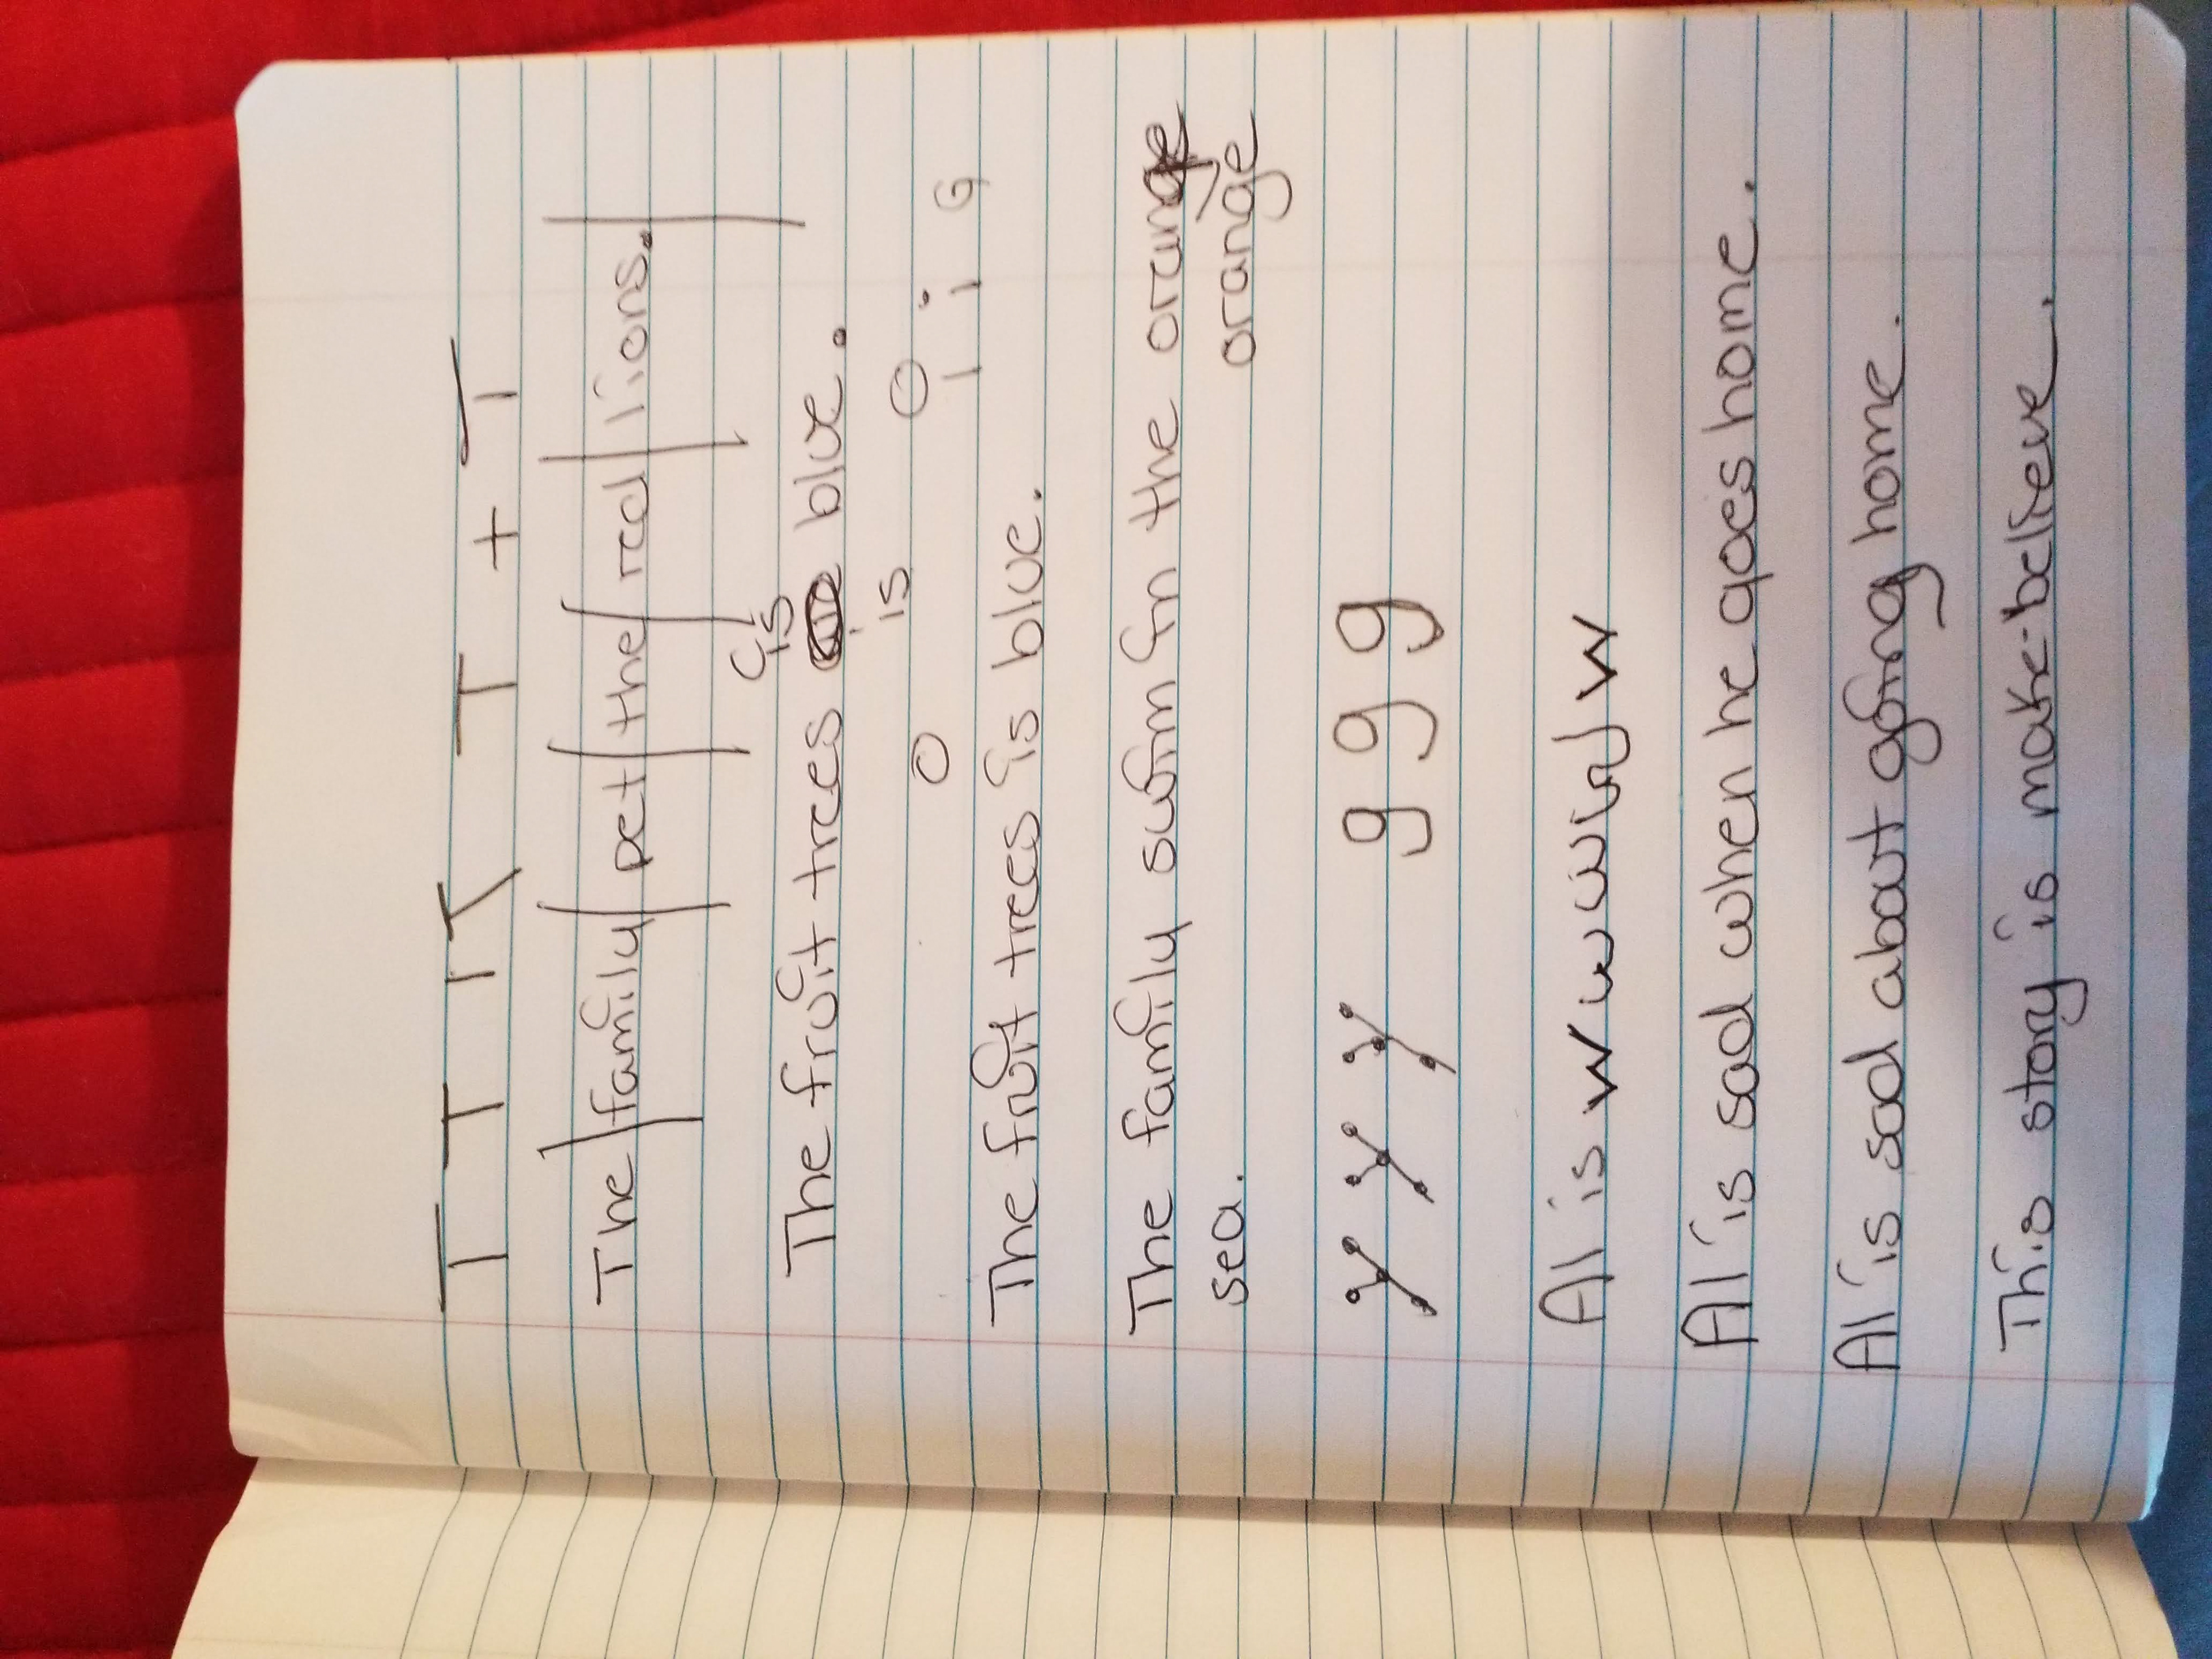 T T K T + T
The/family/pet/the/red/lions./
is
The fruit trees blue.
is
O O i i G
The fruit trees is blue.
The family swim in the orange
sea. orange
y y y g g g
Al is w w w w w
Al is sad when he goes home.
Al is sad about going home.
This story is make-believe.